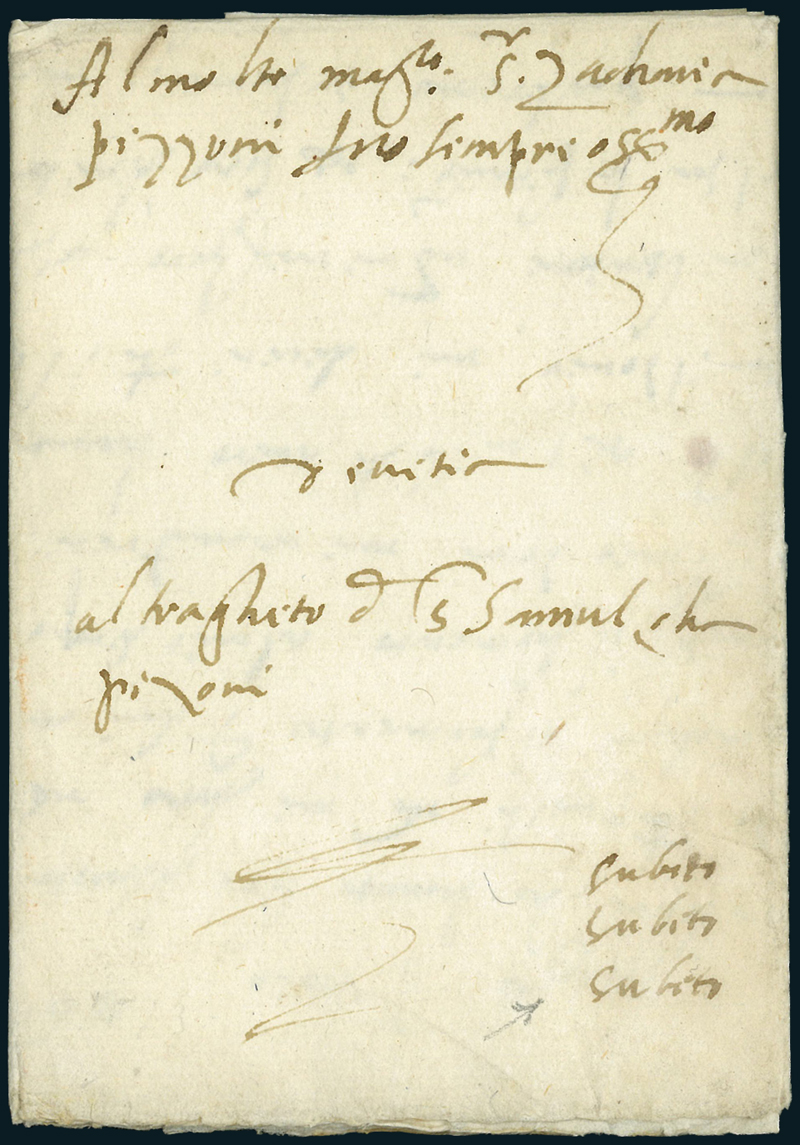 Al molto mag.co s.r Zacharia
pizzoni suo sempre oss.mo
Venitia
al tragheto d s Samuel
pizoni
subito
subito
subito